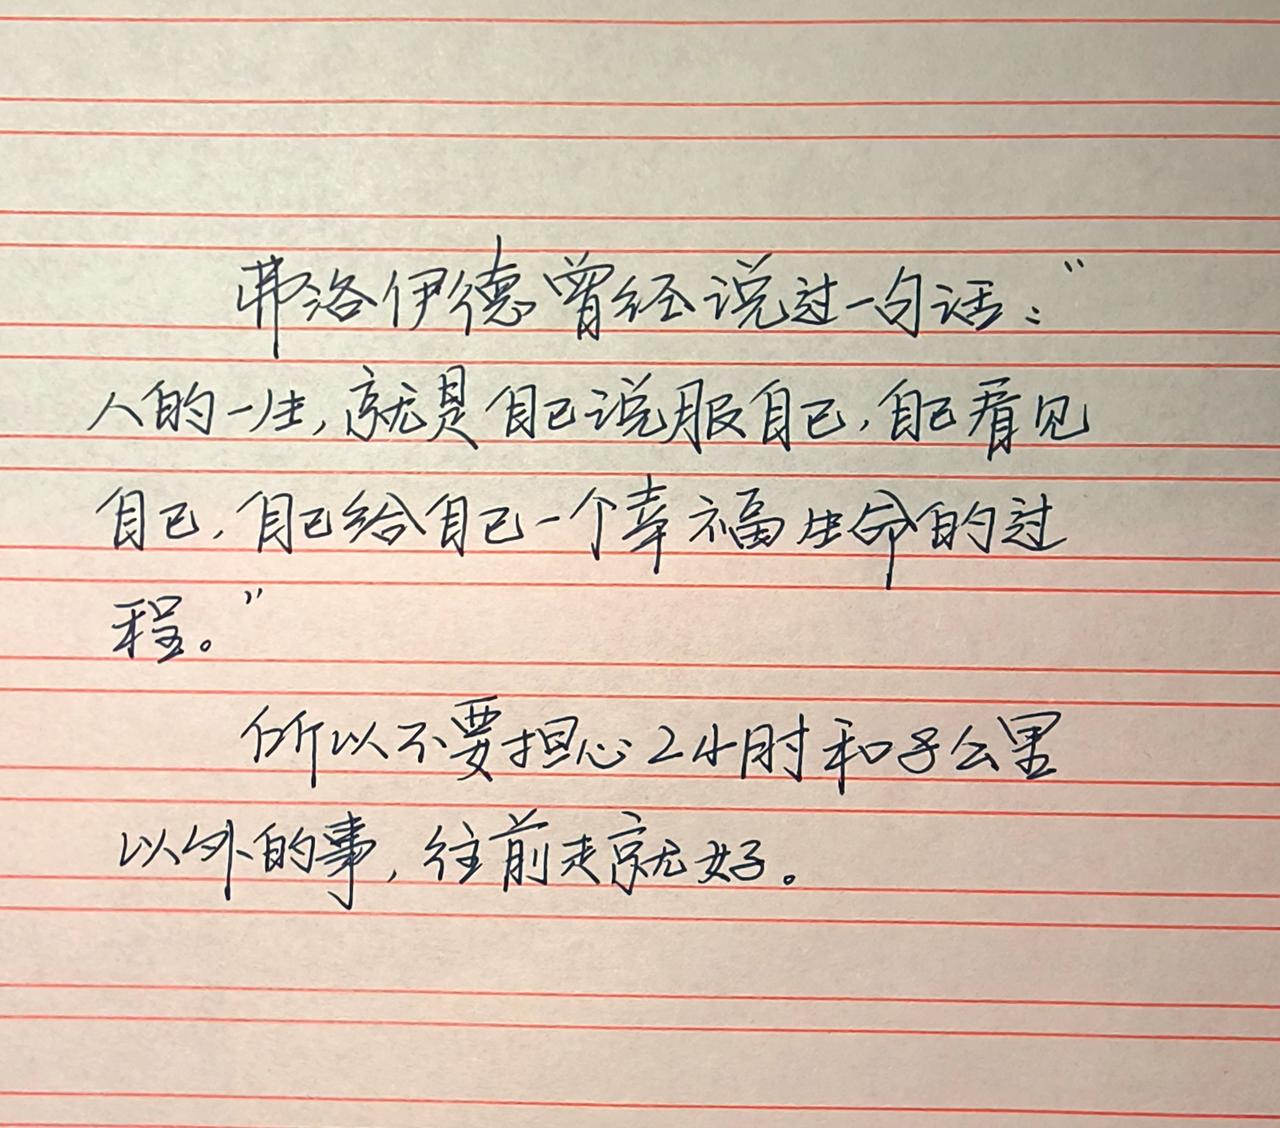 弗洛伊德曾经说过一句话：“
人的一生，就是自己说服自己，自己看见
自己，自己给自己一个幸福生命的过
程。”
所以不要担心2小时和5公里
以外的事，往前走就好。